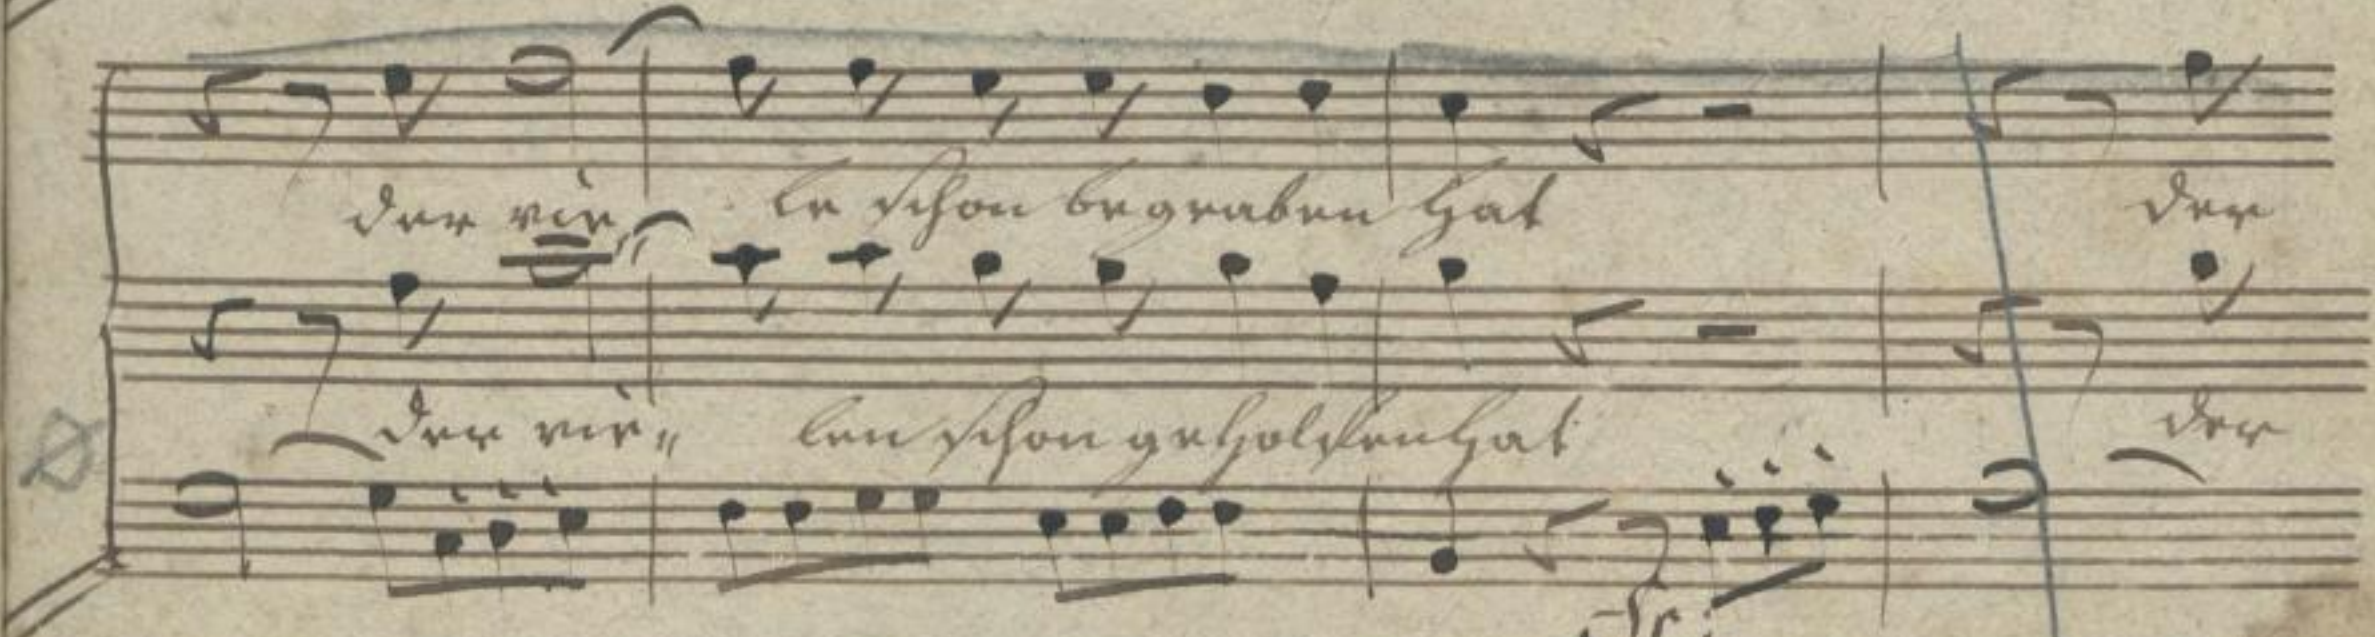 der vie, le schon begraben hat der
der vie„ len schon geholfen hat der